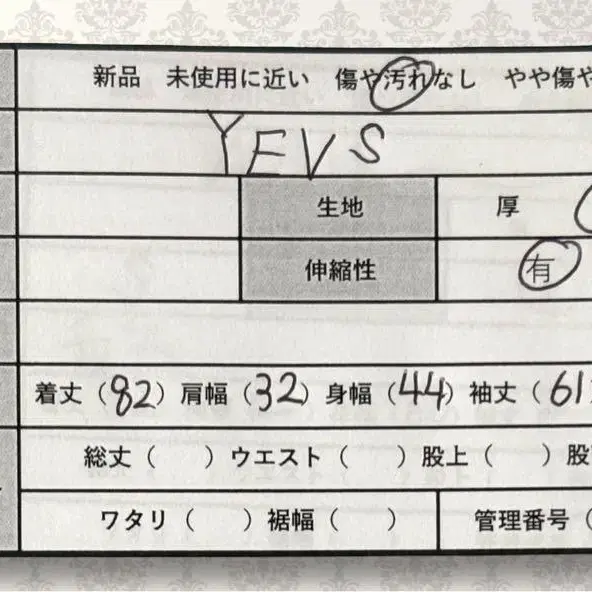 新品 未使用に近い 傷や汚れなし やや傷や
YEVS
生地 厚
伸縮性 有
着丈（82）肩幅（32）身幅（44）袖丈（61
総丈（ ）ウエスト（ ）股上（ ）股
ワタリ（ ）裾幅（ ） 管理番号（